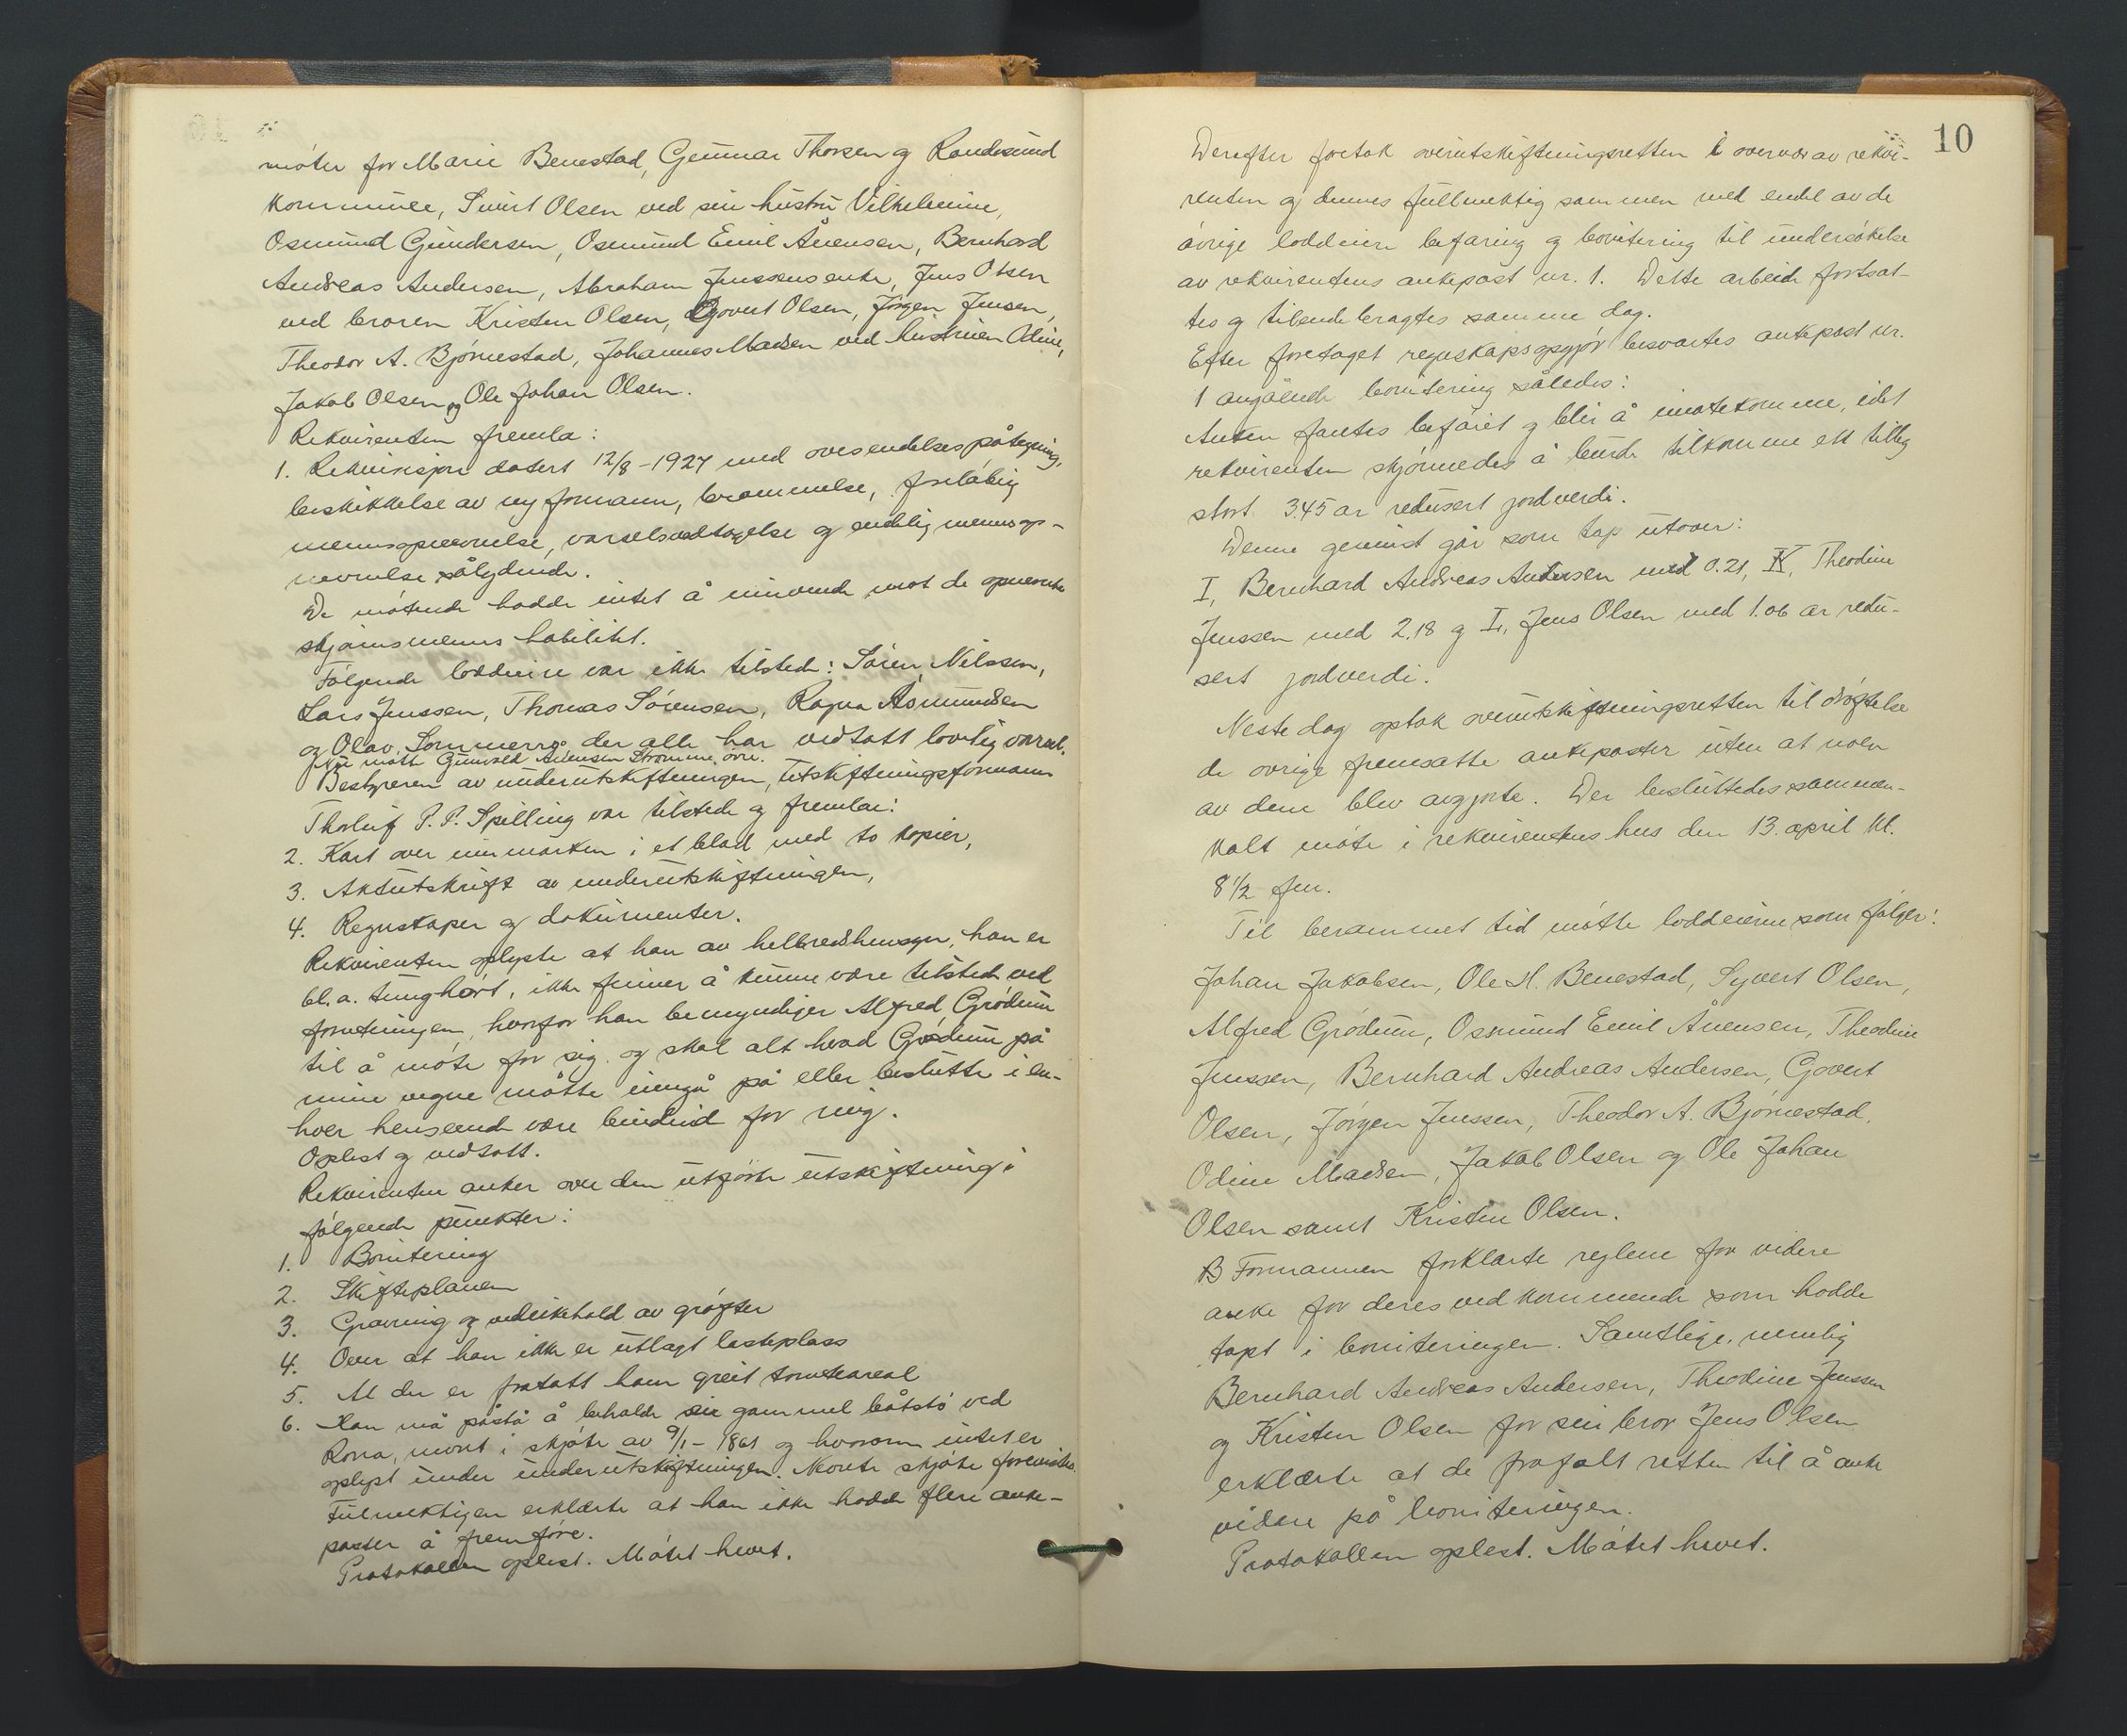 møter for Marie Benestad, Gunnar Thorsen og Randesund
kommune, Sivert Olsen ved sin hustru Vilhelmine,
Osmund Gundersen, Osmund Emil Åuensen, Bernhard
Andreas Andersen, Abraham Jenssens enke, Jens Olsen
ved broren Kristen Olsen, Govert Olsen, Jørgen Jensen,
Theodor A. Bjørnestad, Johannes Madsen ved hustruen Odine,
Jakob Olsen og Ole Johan Olsen.
Rekvirenten fremla:
1. Rekvisisjon datert 12/8-1927 med oversendelsespåtegning,
beskikkelse av ny formann, berammelse, foreløbig
mennsopnevnelse, varselsvedtagelse og endelig mennsop-
nevnelse sålydende.
De møtende hadde intet å innvende mot de opnevnte
skjønsmenns habilitet.
Følgende loddeiere var ikke tilstede: Søren Nilssen,
Lars Jenssen, Thomas Sørensen, Ragna Åsmundsen
og Olav Sommerro der alle har vedtatt lovlig varsel.
Nu møtte Gunvald Åuensen Strømme, øvre.
Bestyreren av underutskiftningen, utskiftningsformann
Thorleif P. P. Spilling var tilstede og fremla:
2. Kart over innmarken i et blad med to kopier,
3. Aktutskrift av underutskiftningen,
4. Regnskaper og dokumenter.
Rekvirenten oplyste at han av helbredshensyn, han er
bl.a. tunghørt, ikke finner å kunne være tilstede ved
forretningen, hvorfor han bemyndiger Alfred Grødum
til å møte for sig og skal alt hvad Grødum på
mine vegne måtte inngå på eller beslutte i en-
hver henseende være bindende for mig.
Oplest og vedtatt.
Rekvirenten anker over den utførte utskiftning i
følgende punkter:
1. Bonitering
2. Skifteplanen
3. Gravning og vedlikehold av grøfter
4. Over at han ikke er utlagt lasteplass
5. At der er fratatt ham greit tomteareal
6. Han må påstå å beholde sin gammel båtstø ved
Rona, nevnt i skjøte av 9/1-1861 og hvorom intet er
oplyst under underutskiftningen. Nevnte skjøte forevistes.
Fullmektigen erklærte at han ikke hadde flere anke-
poster å fremføre.
Protokollen oplest. Møtet hevet.
10
Derefter foretok overutskiftningsretten i overvær av rekvi-
renten og dennes fullmektig sammen med endel av de
øvrige loddeiere befaring og bonitering til undersøkelse
av rekvirentens ankepost nr. 1. Dette arbeide fortsat-
tes og tilendebragtes samme dag.
Efter foretaget regnskapsopgjør besvartes ankepost nr.
1 angående bonitering således:
Anken fantes beføiet og blir å imøtekomme, idet
rekvirenten skjønnedes å burde tilkomme ett tillegg
stort 3.45 ar redusert jordverdi.
Denne gevinst går som tap utover:
I, Bernhard Andreas Andersen med 0.21, K, Theodine
Jenssen med 2.18 og L, Jens Olsen med 1.06 ar redu-
sert jordverdi.
Neste dag optok overutskiftningsretten til drøftelse
de øvrige fremsatte ankeposter uten at noen
av dem blev avgjorte. Der besluttedes sammen-
kalt møte i rekvirentens hus den 13. april kl.
8 1/2 fm.
Til berammet tid møtte loddeierne som følger:
Johan Jakobsen, Ole H. Benestad, Syvert Olsen,
Alfred Grødum, Osmund Emil Åuensen, Theodine
Jenssen, Bernhard Andreas Andersen, Govert
Olsen, Jørgen Jenssen, Theodor A. Bjørnestad,
Odine Madsen, Jakob Olsen og Ole Johan
Olsen samt Kristen Olsen.
Formannen forklarte reglene for videre
anke for deres vedkommende som hadde
tapt i boniteringen. Samtlige, nemlig
Bernhard Andreas Andersen, Theodine Jenssen
og Kristen Olsen for sin bror Jens Olsen
erklærte at de frafalt retten til å anke
videre på boniteringen.
Protokollen oplest. Møtet hevet.